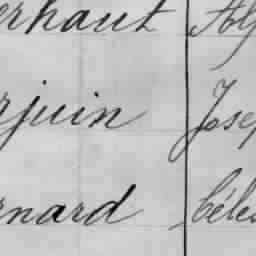 erhaut Alf
rjuin Josep
rnard Céles